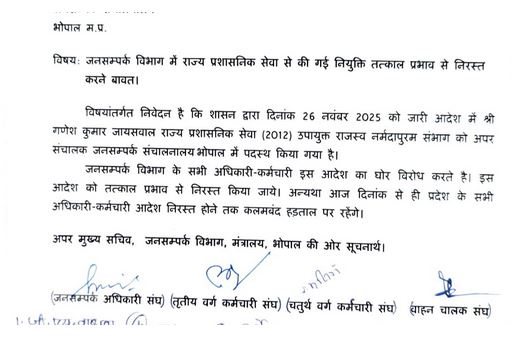 भोपाल म.प्र.
विषय: जनसम्पर्क विभाग में राज्य प्रशासनिक सेवा से की गई नियुक्ति तत्काल प्रभाव से निरस्त
करने बावत।
विषयांतर्गत निवेदन है कि शासन द्वारा दिनांक 26 नवंबर 2025 को जारी आदेश में श्री
गणेश कुमार जायसवाल राज्य प्रशासनिक सेवा (2012) उपायुक्त राजस्व नर्मदापुरम संभाग को अपर
संचालक जनसम्पर्क संचालनालय भोपाल में पदस्थ किया गया है।
जनसम्पर्क विभाग के सभी अधिकारी-कर्मचारी इस आदेश का घोर विरोध करते है। इस
आदेश को तत्काल प्रभाव से निरस्त किया जाये। अन्यथा आज दिनांक से ही प्रदेश के सभी
अधिकारी-कर्मचारी आदेश निरस्त होने तक कलमबंद हडताल पर रहेंगे।
अपर मुख्य सचिव, जनसम्पर्क विभाग, मंत्रालय, भोपाल की ओर सूचनार्थ।
(जनसम्पर्क अधिकारी संघ) (तृतीय वर्ग कर्मचारी संघ) (चतुर्थ वर्ग कर्मचारी संघ) (वाहन चालक संघ)